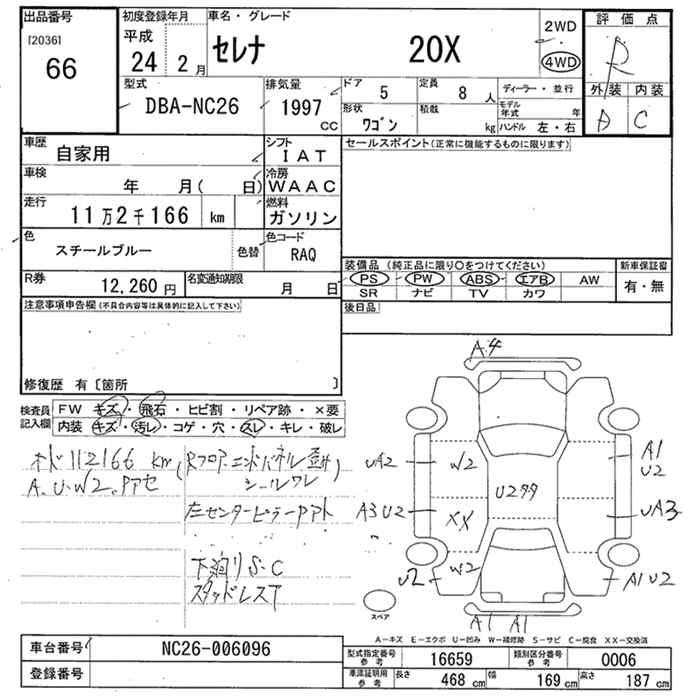 出品番号
[2036]
66
初度登録年月
平成
24 2 月
車名・グレード
セレナ 20X
2WD
4WD
評価点
R
外装 内装
A C
型式
DBA-NC26
排気量
1997
cc
ドア 5
定員 8 人
形状 ワゴン
積載 kg
ディーラー・並行
モデル年式 年
ハンドル 左・右
車歴
自家用
シフト
IAT
車検
年 月( 日)
冷房
WAAC
走行
11万2千166 km
燃料
ガソリン
色
スチールブルー
色替
色コード
RAQ
R券
12,260 円
名変通知期限
月 日
注意事項申告欄(不具合内容等は具体的に記入して下さい)
修復歴 有〔箇所 〕
セールスポイント(正常に機能するものに限ります)
装備品(純正品に限り○をつけてください)
PS PW ABS エアB AW
SR ナビ TV カワ
新車保証書
有・無
後日品
検査員記入欄
FW キズ・飛石・ヒビ割・リペア跡・×要
内装 キズ・汚レ・コゲ・穴・スレ・キレ・破レ
オド112166 km
A.U.W2.
(Rフロア.エンドパネル
シールワレ
左センターピラー
下廻りS・C
スタッドレスT
A4
UA2
W2
A1
U2
U2
A3 U2
XX
UA3
U2
W2
A1 U2
A1 A1
スペア
A―キズ E―エクボ U―凹み W―補修跡 S―サビ C―腐食 XX―交換済
車台番号
NC26-006096
登録番号
型式指定番号
参考
16659
類別区分番号
参考
0006
車庫証明用
参考
長さ 468 cm
幅 169 cm
高さ 187 cm